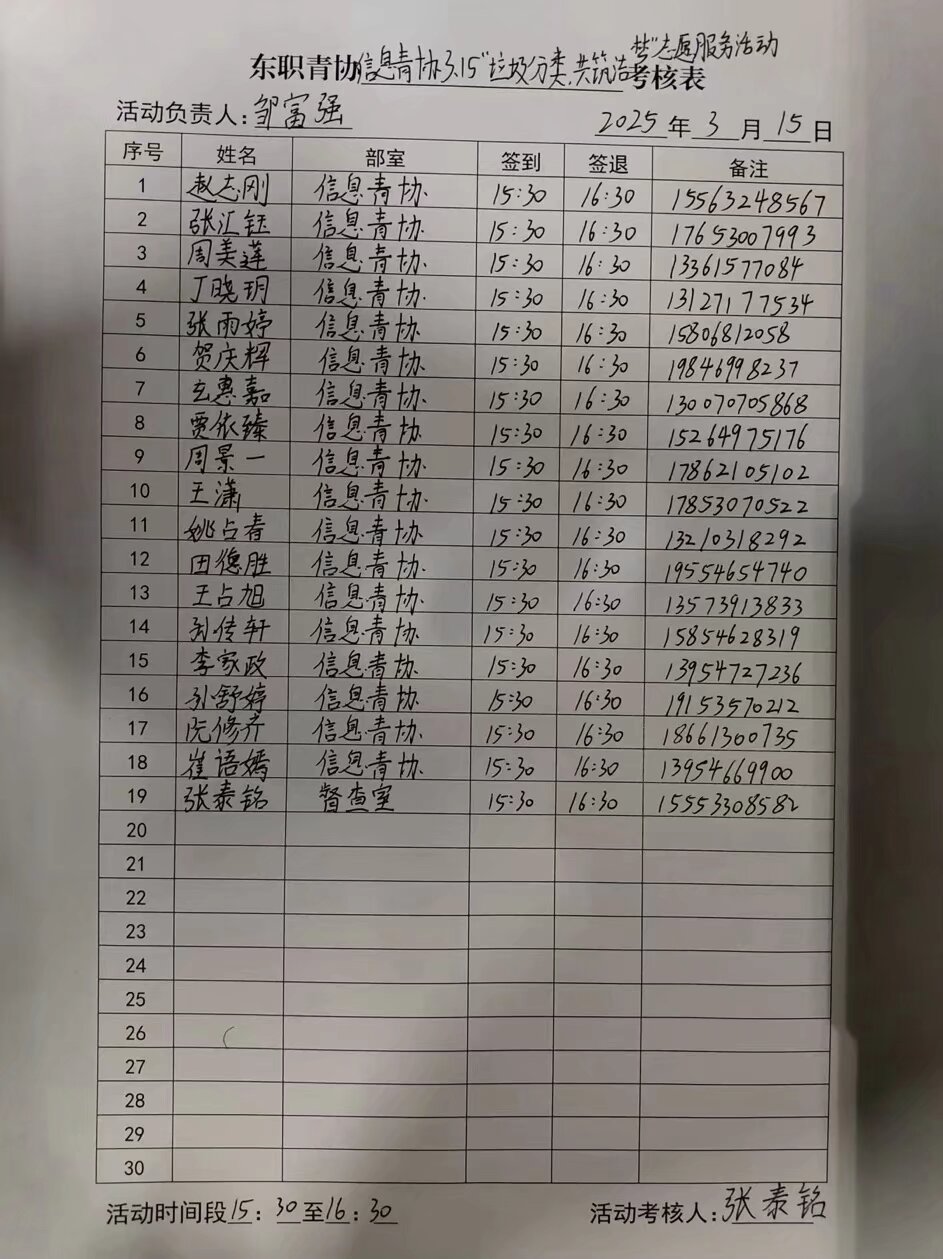 梦"志愿服务活动
东职青协信息青协3.15"垃圾分类,共筑洁考核表
活动负责人:邹富强 2025年3月15日
序号 姓名 部室 签到 签退 备注
1 赵志刚 信息青协 15:30 16:30 15563248567
2 张汇钰 信息青协. 15:30 16:30 17653007993
3 周美莲 信息青协. 15:30 16:30 13361577084
4 丁晓玥 信息青协. 15:30 16:30 13127177534
5 张雨婷 信息青协. 15:30 16:30 15806812058
6 贺庆辉 信息青协. 15:30 16:30 19846998237
7 玄惠嘉 信息青协. 15:30 16:30 130070705868
8 贾依臻 信息青协 15:30 16:30 15264975176
9 周景一 信息青协. 15:30 16:30 17862105102
10 王潇 信息青协. 15:30 16:30 17853070522
11 姚占春 信息青协. 15:30 16:30 13210318292
12 田德胜 信息青协. 15:30 16:30 19554654740
13 王占旭 信息青协. 15:30 16:30 13573913833
14 孙传轩 信息青协. 15:30 16:30 15854628319
15 李家政 信息青协. 15:30 16:30 13954727236
16 孙舒婷 信息青协. 15:30 16:30 19153570212
17 阮修齐 信息青协. 15:30 16:30 18661300735
18 崔语嫣 信息青协. 15:30 16:30 13954669900
19 张泰铭 督查室 15:30 16:30 15553308582
20
21
22
23
24
25
26
27
28
29
30
活动时间段15:30至16:30 活动考核人:张泰铭